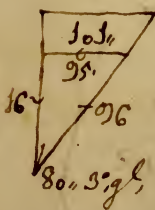 101„
95.
16 96
80„ 3. gl,